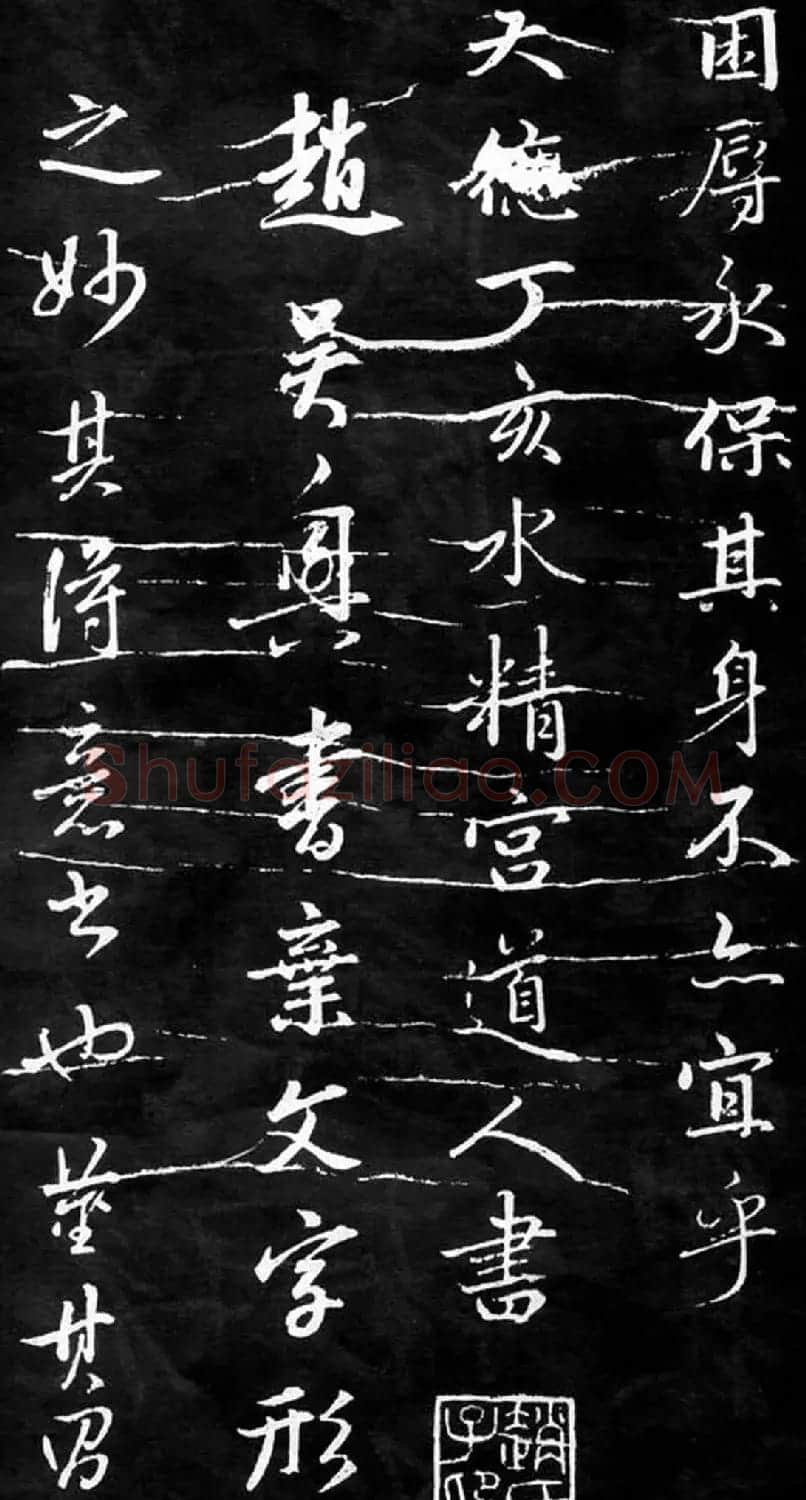 困辱永保其身不亦宜乎
天德丁亥水精宫道人書
趙吳興書棄文字形
之妙其得意书也董其昌
趙氏子
Shufaziliao.COM